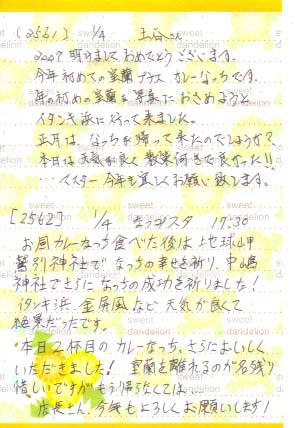 [2561] 1/4 玉谷さん
2007 明けましておめでとうございます。
今年初めての室蘭プラス カレーなっちです。
年の初めの室蘭を写真におさめようと
イタンキ浜に行って来ました。
正月は、なっちが帰って来たのでしょうか?
本日は天気が良く散策何きで良かった!!
…マスター 今年も宜しくお願い致します。
[2562] 1/4 17:30
お昼カレーなっち食べた後は地球岬
鷲別神社で なっちの幸せを祈り、中嶋
神社でさらに なっちの成功を祈りました!
イタンキ浜、金屏風など 天気が良くて
最高だったです。
・本日2杯目の カレーなっち、さらにおいしく
いただきました! 室蘭を離れるのが名残り
惜しいですがもう帰らなくては…
店長さん、今年もよろしくお願いします!
sweet
dandelion